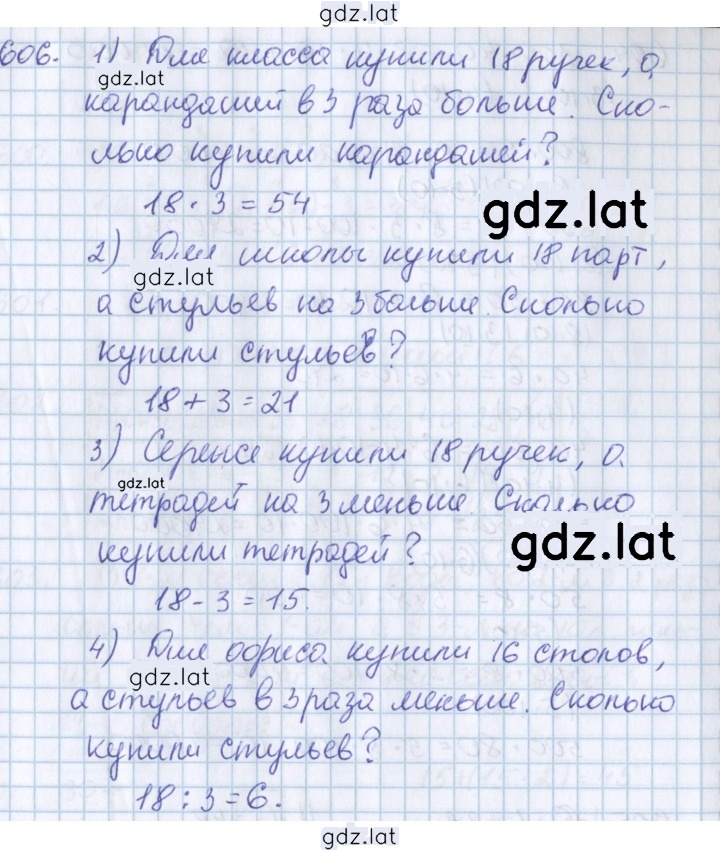 gdz.lat
606. 1) Для класса купили 18 ручек, а
gdz.lat
карандашей в 3 раза больше. Ско-
лько купили карандашей?
18 · 3 = 54
gdz.lat
2) Для школы купили 18 парт,
gdz.lat
а стульев на 3 больше. Сколько
купили стульев?
18 + 3 = 21
3) Сереже купили 18 ручек, а
gdz.lat
тетрадей на 3 меньше. Сколько
купили тетрадей?
gdz.lat
18 - 3 = 15.
4) Для офиса купили 16 столов,
gdz.lat
а стульев в 3 раза меньше. Сколько
купили стульев?
18 : 3 = 6.
gdz.lat